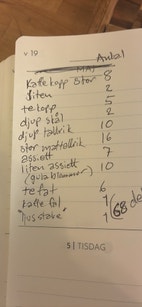 v 19
Antal
Kaffekopp stor 8
" liten 2
tekopp 5
djup skål 2
djup tallrik 10
stor mattallrik 16
assiett 7
liten assiett 10
(gula blommor)
tefat 6
kaffe fat 1
"ljusstake" 1 (68 de
5 | TISDAG